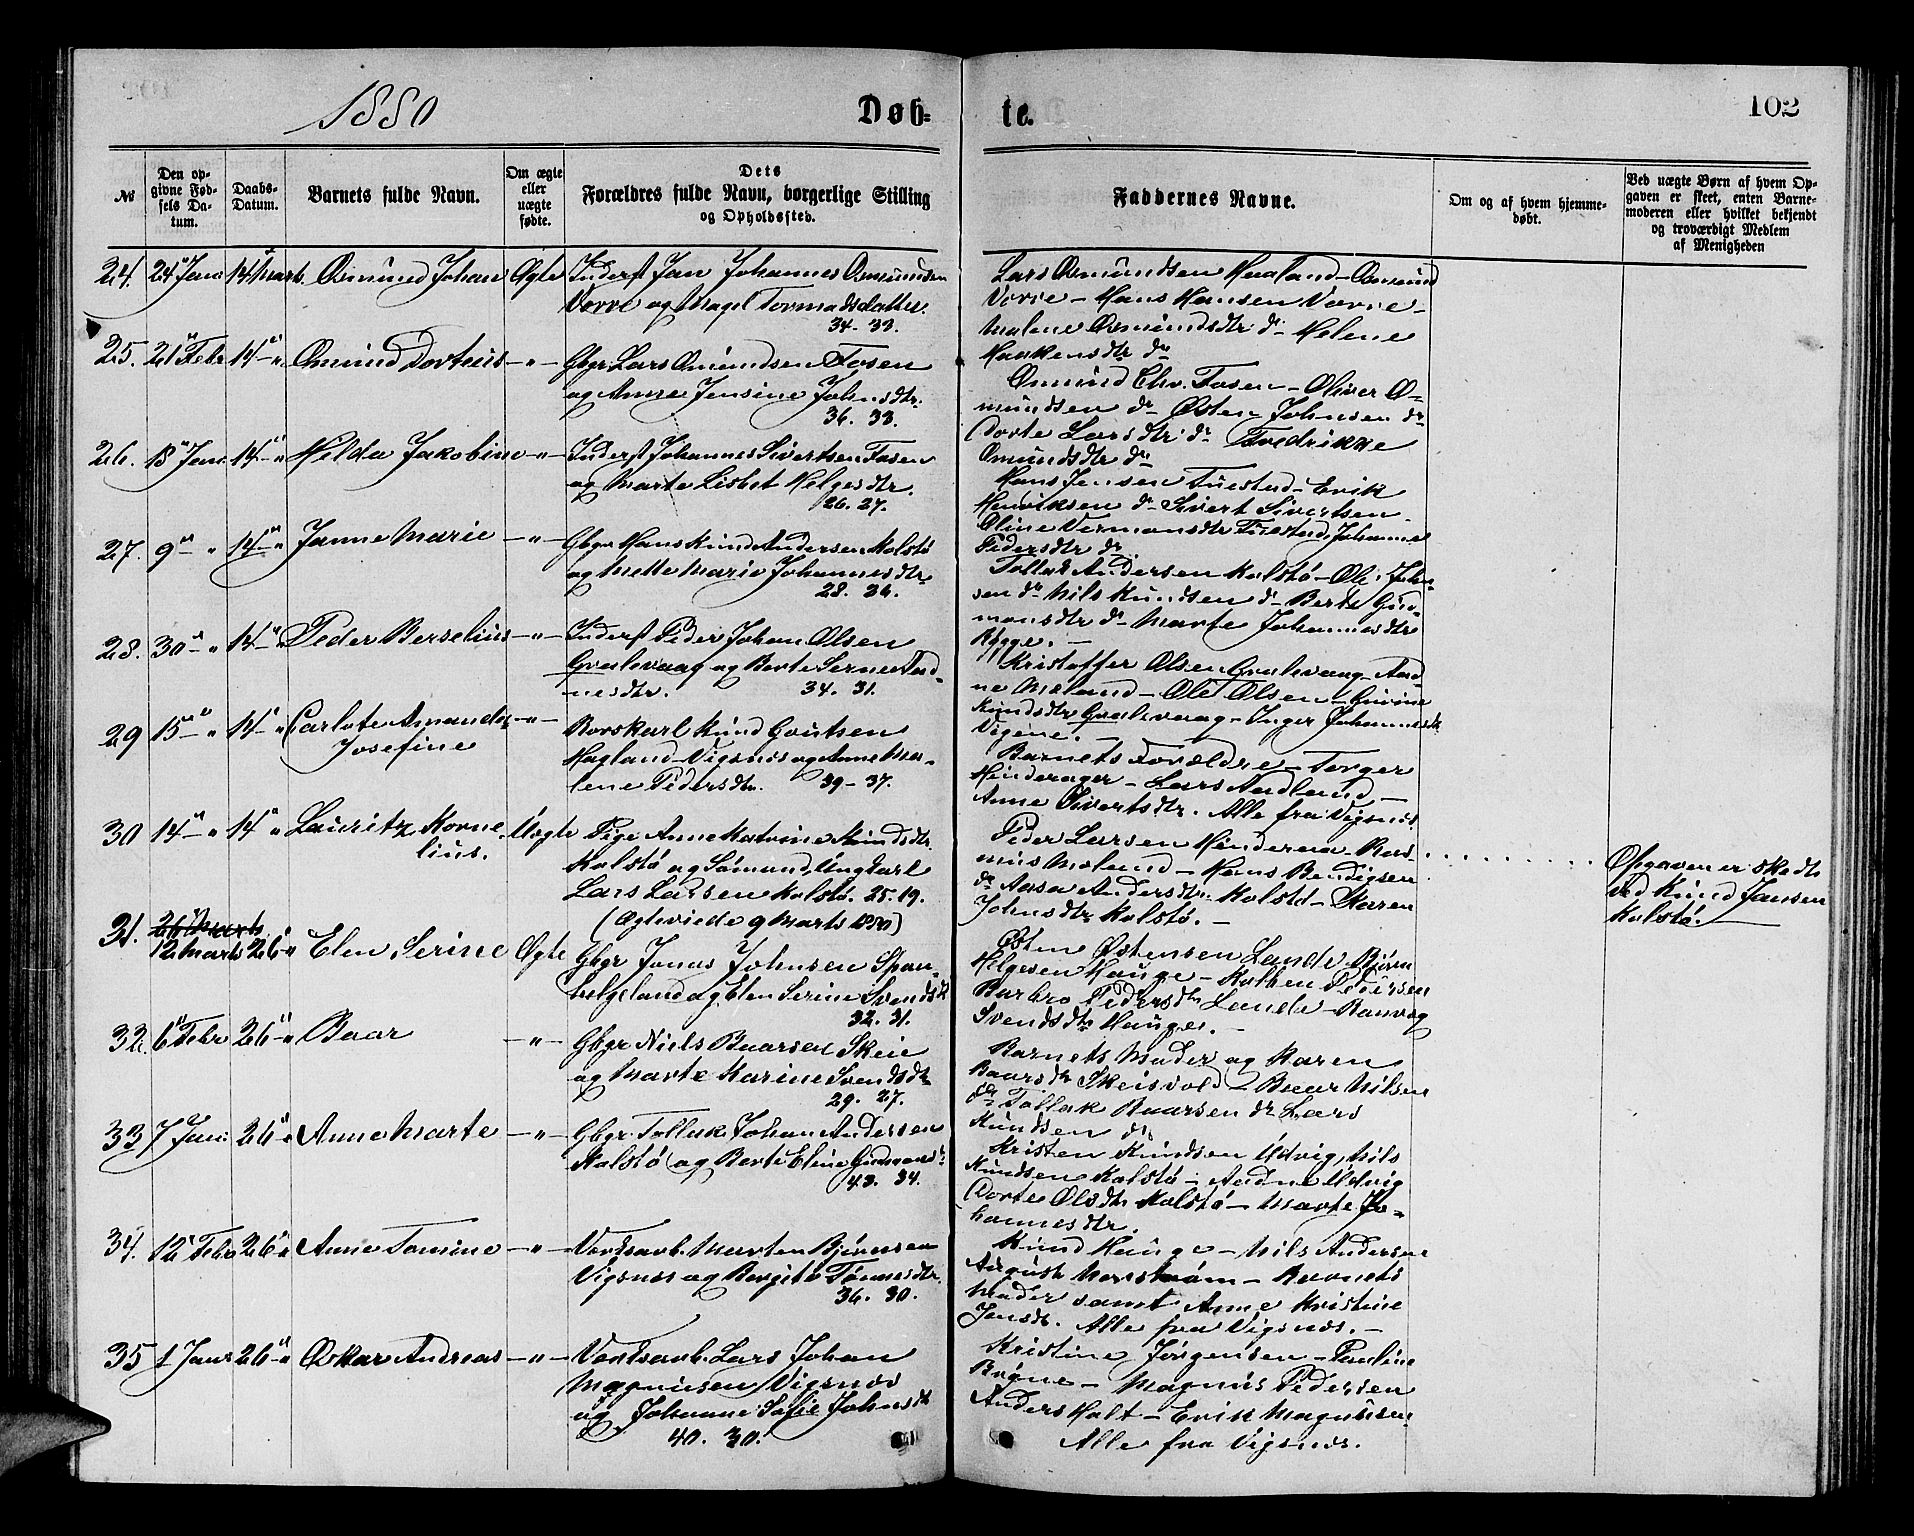 1880
Døb-
te.
102
№
Den op-
givne Fød-
sels Da-
tum.
Daabs-
Datum.
Barnets fulde Navn.
Om ægte
eller
uægte
fødte.
Dets
Forældres fulde Navn, borgerlige Stilling
og Opholdssted.
Faddernes Navne.
Om og af hvem hjemme-
døbt.
Ved uægte Børn af hvem Op-
gaven er skeet, enten Barne-
moderen eller hvilket bekjendt
og troværdigt Medlem
af Menigheden
24. 24 Jan 14 Marts Osmund Johan Ægte Inderst Jan Johannes Osmundsen
Vorre og Magl Tormodsdatter.
34-33.
Lars Osmundsen Haaland - Osmund
Vorre - Hans Hansen Vorre -
Malene Osmundsdtr do - Helene
Haakensdtr do
25. 21 Febr 14 - " Omund Dortius - " - Gbgr Lars Omundsen Fosen
og Anne Jensine Johnsdtr.
36. 33.
Omund Chr. Fosen - Oliver O-
mundsen do - Østen Johnsen do
Dorte Larsdtr do Fredrikke
Omundsdtr do
26. 18 Jan 14 - " Hilda Jakobine - " - Inderst Johannes Sivertsen Fosen
og Marte Lisbet Helgesdtr.
26. 27.
Hans Jensen Tuestad - Erik
Henriksen do Sivert Sivertsen
Oline Vermonsdtr Tuestad, Johanne
Pedersdtr do
27. 9 - " 14 - " Janne Marie - " - Gbgr Hans Knud Andersen Kolstø
og Mette Marie Johannesdtr
28. 26.
Tollak Andersen Kolstø - Ole John-
sen do Nils Knudsen do - Berte Gud-
monsdtr do Marte Johannesdtr
Rygge. -
28. 30 - " 14 - " Peder Berselius - " - Inderst Peder Johan Olsen
Grulevaag og Berte Serine Aad-
nesdtr. 34. 31.
Kristoffer Olsen Grulevaag - Aad-
ne Meland - Ole Olsen - Gurine
Knudsdtr Grulevaag - Inger Johannesdtr
Vigene. -
29 15 - " 14 - " Carlote Amanda
Josefine - " - Borskarl Knud Goutsen
Hagland - Vigsnes og Anne Ma-
lene Pedersdtr. 39 - 37.
Barnets Forældre - Torger
Hinderager - Lars Aadland -
Anne Sivertsdtr. Alle fra Vigsnes.
30 14 - " 14 " Lauritz Korne-
lius. Uægte Pige Anne Katrine Knudsdtr.
Kolstø og Sømand, Ungkarl
Lars Larsen Kolstø. 25. 19.
(Ægteviede 9 Marts 1880)
Peder Larsen Hinderaa - Ras-
mus Meland - Hans Bendigsen
do Aasa Andersdtr Kolstø - Karen
Johnsdtr Kolstø. -
Opgaven er skedt
ved Knud Jansen
Kolstø.
31. 26 Marts
12 Marts 26 - " Elen Serine Ægte Gbgr Jonas Johnsen Span-
helgeland og Elen Serine Svendsdtr
32. 31.
Østen Østensen Lande Bjørn
Helgesen Hauge - Kolben Pedersen
Barbro Pedersdtr Lande - Ranveg
Svendsdtr Hauge. -
32. 6 Febr 26 - " Baar - " - Gbgr Niels Baarsen Skeie
og Marte Karine Svendsdtr
29. 27.
Barnets Moder og Karen
Baarsdtr Skeisvold - Baar Nilsen
do Tollak Baarsen do Lars
Knudsen do
33 7 Jan 26 - " Anne Marte - " - Gbgr Tollak Johan Andersen
Kolstø og Berte Eline Gudmonsdtr
43. 34.
Kristen Knudsen Udvig, Nils
Knudsen Kolstø - Aadne Udvig
Dorte Olsdtr Kolstø - Marte Jo-
hannesdtr.
34. 12 Febr 26 - " Anne Tomine - " - Verksarb. Morten Bjørnsen
Vigsnes og Bergite Tønnesdtr.
36. 30.
Knud Hauge - Nils Andersen
August Norstrøm - Barnets
Moder samt Anne Kristine
Jensdtr. Alle fra Vigsnes. -
35 1 Jan 26 - " Oskar Andreas - " - Verksarb. Lars Johan
Magnusen Vigsnes
og Johanne Sofie Johnsdtr
40. 30.
Kristine Jørgensen - Pauline
Bøgne - Magnus Pedersen
Anders Holt - Erik Magnusen
Alle fra Vigsnes.